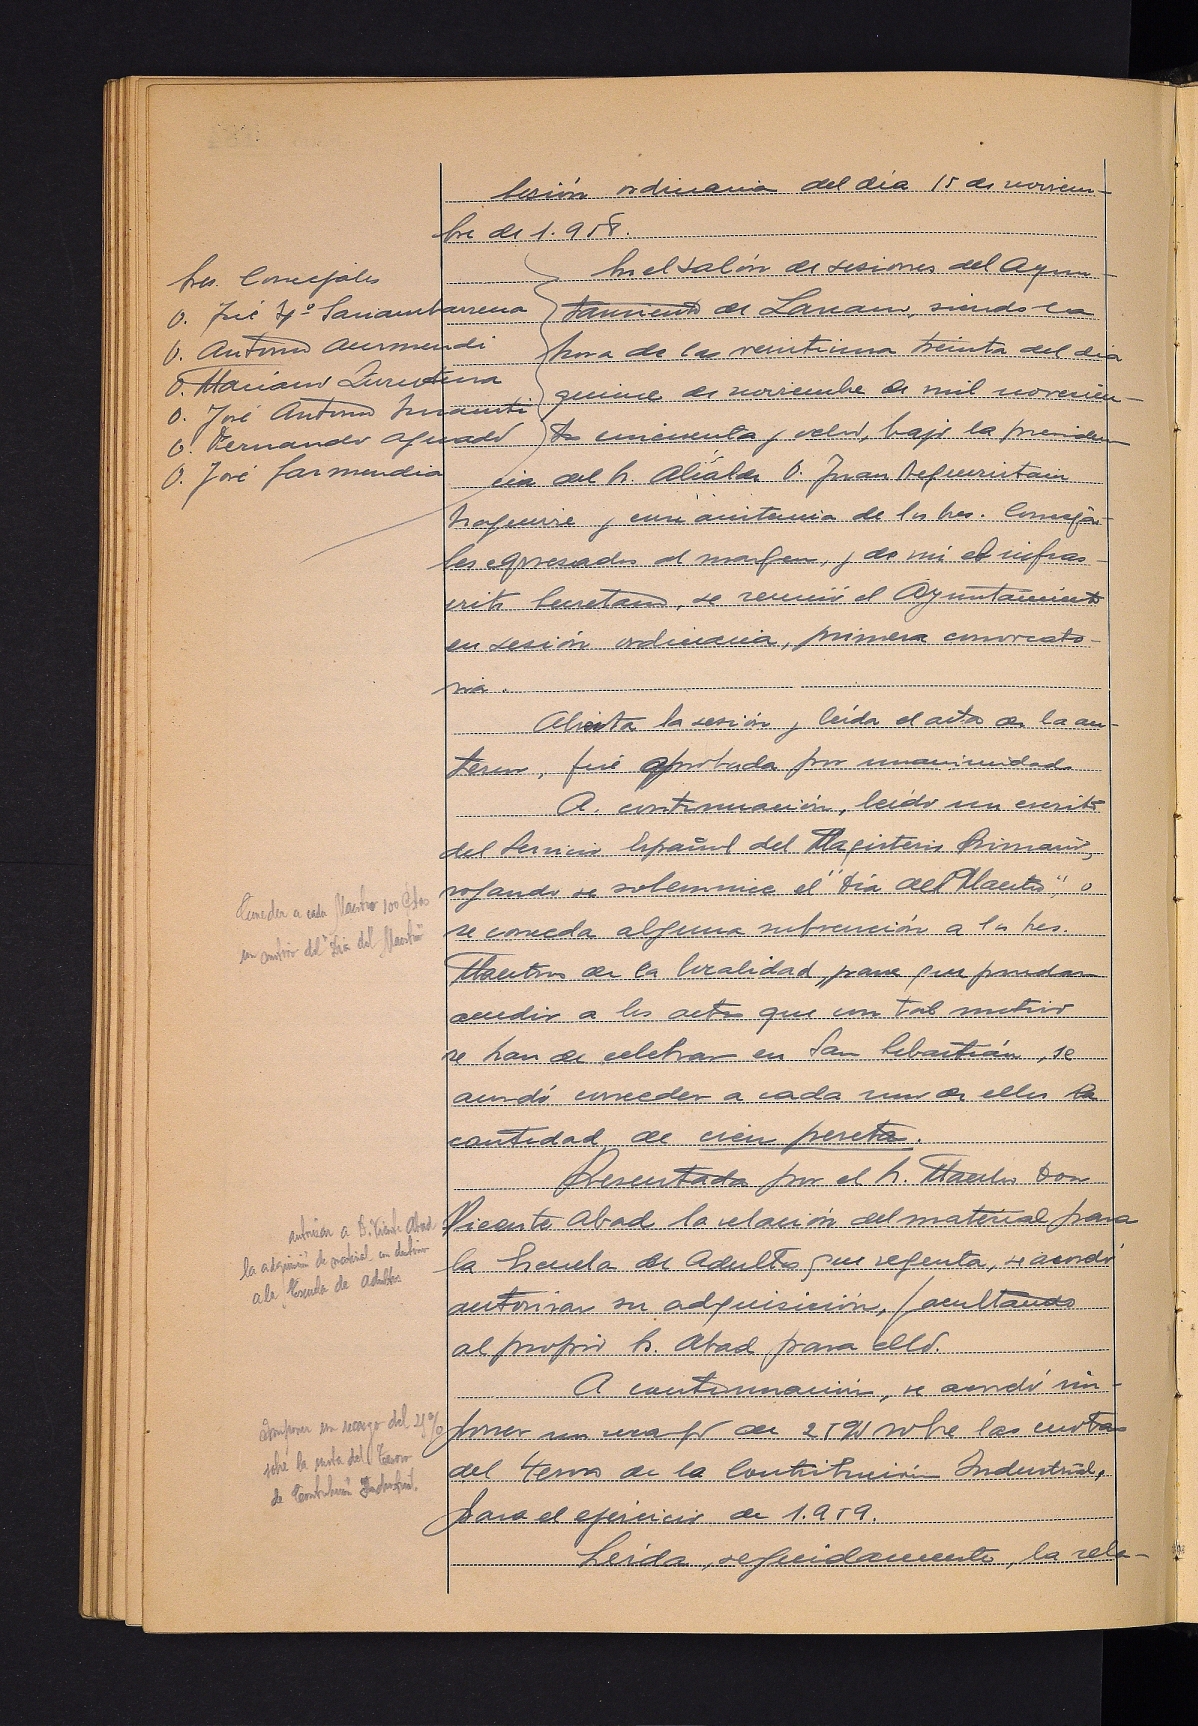 Sesión ordinaria del día 15 de noviem-
bre de 1.958.
Sres. Concejales
D. José Mª Sariambarrena
D. Antonio Aurmendi
D. Mariano Zurutuza
D. José Antonio
D. Fernando Aguado
D. José Garmendia
En el salón de sesiones del Ayun-
tamiento de Lazcano, siendo la
hora de las veintiuna treinta del día
quince de noviembre de mil novecien-
tos cincuenta y ocho, bajo la presiden-
cia del Sr. Alcalde D. Juan Beguiristain
y con asistencia de los Sres. Conceja-
les expresados al margen, y de mi el infras-
crito Secretario, se reunió el Ayuntamiento
en sesión ordinaria, primera convocato-
ria.
Abierta la sesión y leída el acta de la an-
terior, fué aprobada por unanimidad.
A continuación, leído un escrito
del Servicio Español del Magisterio Primario,
rogando se solemnice el "Día del Maestro" o
se conceda alguna subvención a los Sres.
Maestros de la localidad, para que puedan
acudir a los actos que con tal motivo
se han de celebrar en San Sebastián, se
acordó conceder a cada uno de ellos la
cantidad de cien pesetas.
Conceder a cada Maestro 100 Ptas
con motivo del "Día del Maestro"
Presentada por el Sr. Maestro Don
Vicente Abad la relación del material para
la Escuela de Adultos que regenta, se acordó
autorizar su adquisición, facultando
al propio Sr. Abad para ello.
autorizar a D. Vicente Abad
la adquisición de material con destino
a la Escuela de Adultos
A continuación, se acordó im-
poner un recargo de 25% sobre las cuotas
del Tesoro de la Contribución Industrial,
para el ejercicio de 1.959.
Imponer un recargo del 25%
sobre la cuota del Tesoro
de Contribución Industrial.
Leída, seguidamente, la rela-